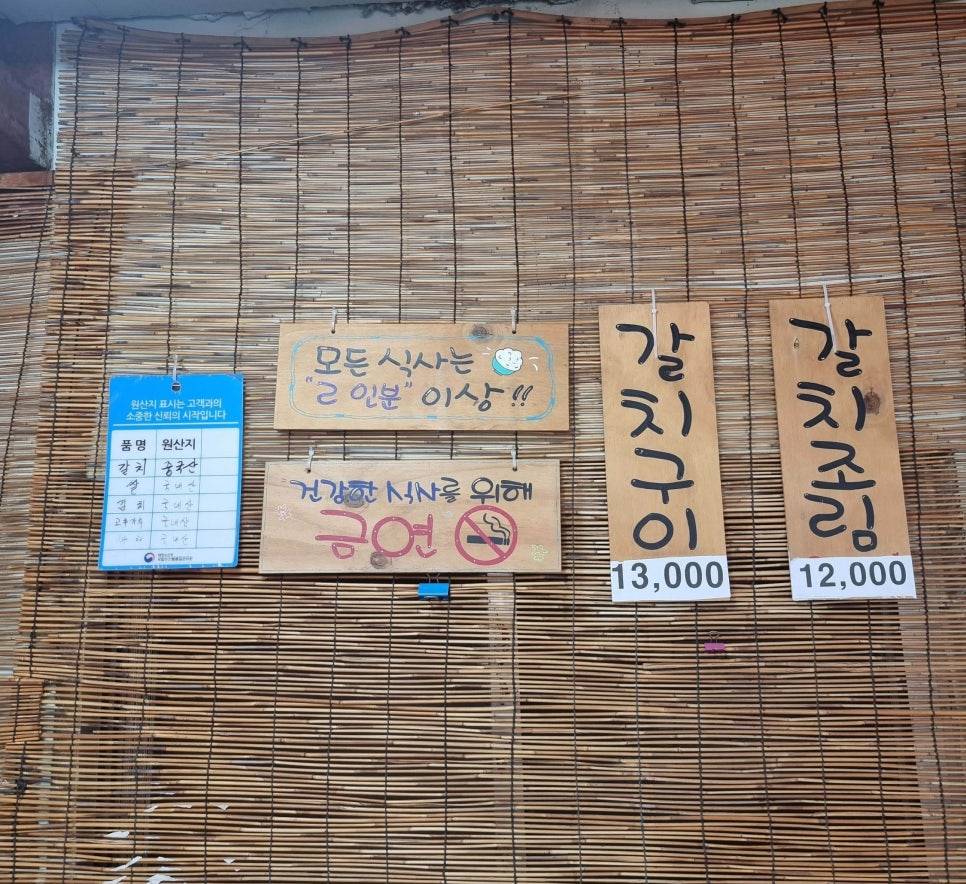 원산지 표시는 고객과의
소중한 신뢰의 시작입니다
품명 원산지
갈치 중국산
쌀 국내산
김치 국내산
고추가루 국내산
국내산
모든 식사는
"2 인분" 이상!!
"건강한 식사를 위해
금연
갈치구이
13,000
갈치조림
12,000